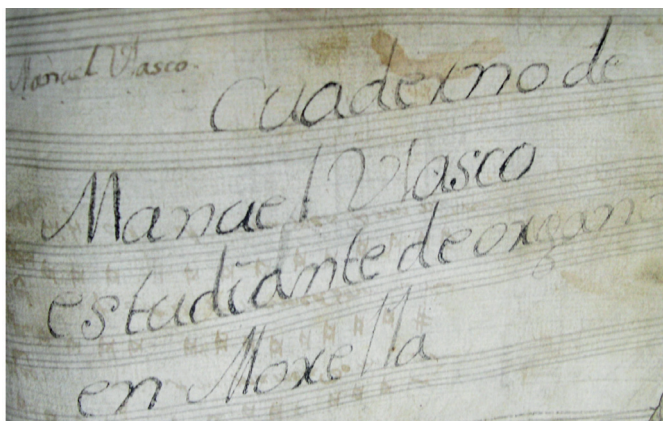 Manuel Vlasco.
Cuaderno de
Manuel Vlasco
estudiante de organo
en Morella